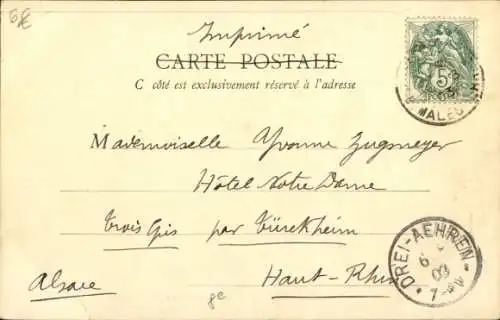 6€
Imprimé
CARTE POSTALE
C côté est exclusivement réservé à l'adresse
5
MALES
03
Mademoiselle Yvonne Zugmeyer
Hôtel Notre Dame
Trois Epis par Türckheim
Alsace Haut-Rhin
DREI-AEHREN
6
03
7-